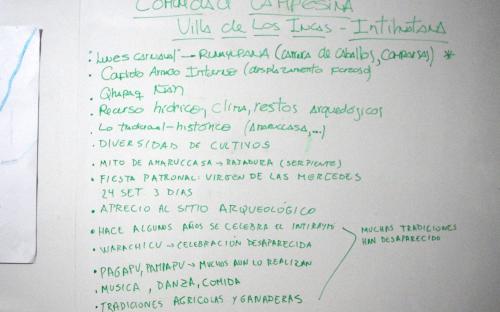 COMUNIDAD CAMPESINA
Villa de Los Incas - Intihuatana
• Lunes carnaval → (carrera de caballos, comparsas) *
• Conflicto Armado Interno (desplazamiento forzoso)
• Qhapaq Ñan
• Recurso hídrico, clima, restos arqueológicos
• Lo tradicional - histórico
• DIVERSIDAD DE CULTIVOS
• MITO DE AMARUCCASA → RAJADURA (SERPIENTE)
• FIESTA PATRONAL: VIRGEN DE LAS MERCEDES
24 SET 3 DIAS
• APRECIO AL SITIO ARQUEOLÓGICO
• HACE ALGUNOS AÑOS SE CELEBRA EL INTIRAYMI
• WARACHICU → CELEBRACIÓN DESAPARECIDA
• PAGAPU, PAMPAPU → MUCHOS AUN LO REALIZAN
• MUSICA, DANZA, COMIDA
• TRADICIONES AGRICOLAS Y GANADERAS
MUCHAS TRADICIONES
HAN DESAPARECIDO